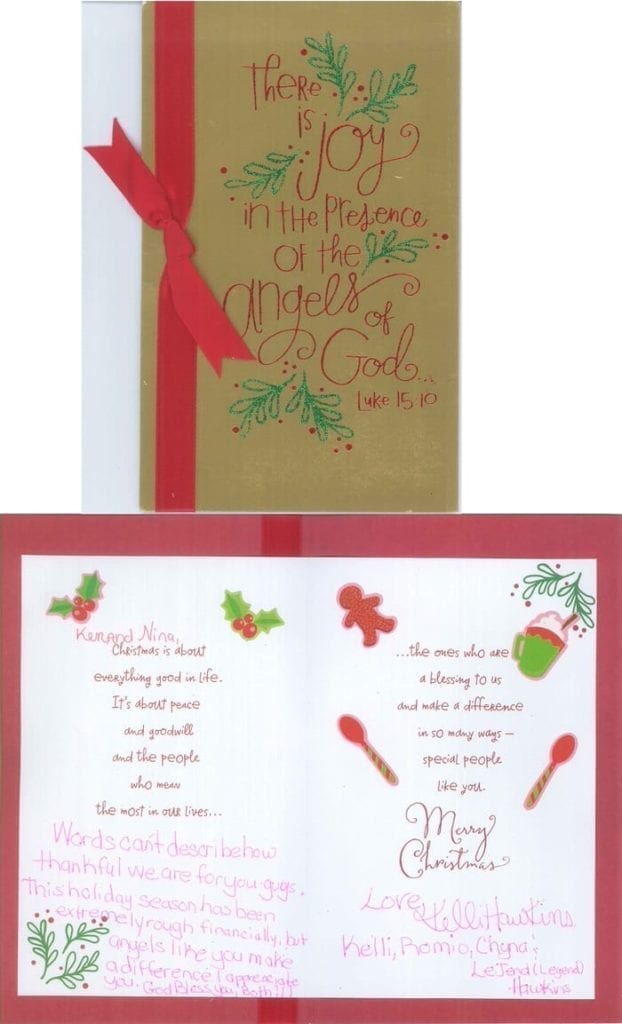 There
is
joy
in the presence
of the
angels
of
God...
Luke 15:10
Ken and Nina,
Christmas is about
everything good in life.
It's about peace
and goodwill
and the people
who mean
the most in our lives...
Words can't describe how
thankful we are for you guys.
This holiday season has been
extremely rough financially, but
angels like you make
a difference I apprenciate
you. God Bless you Both!!
...the ones who are
a blessing to us
and make a difference
in so many ways—
special people
like you.
Merry
Christmas
Love,
Kelli Hawkins
Kelli, Romio, Chyna &
LeJend (Legend)
Hawkins